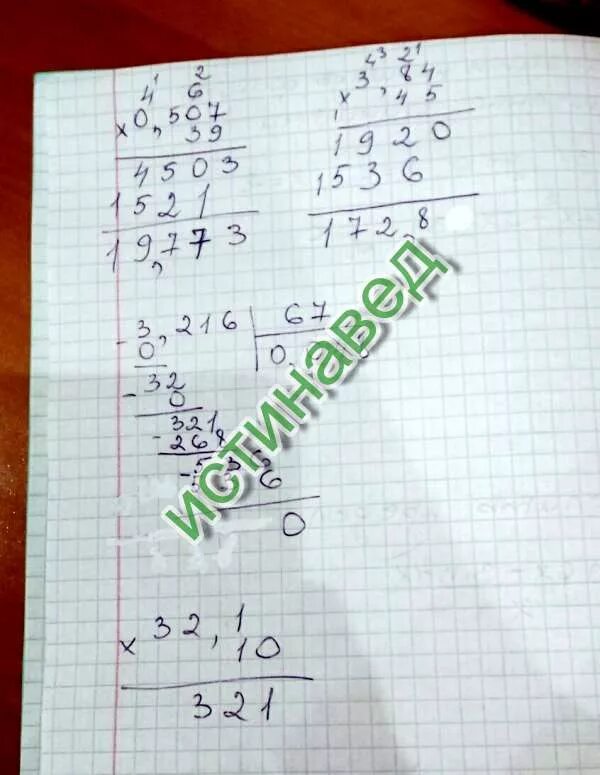 4¹ 6²
× 0,507
39
4503
1521
19,773
4³ 2¹
× 3,84
45
1920
1536
172,8
- 3,216 | 67
0
0,
- 32
0
- 321
268
6
0
× 32,1
10
321
истинавед